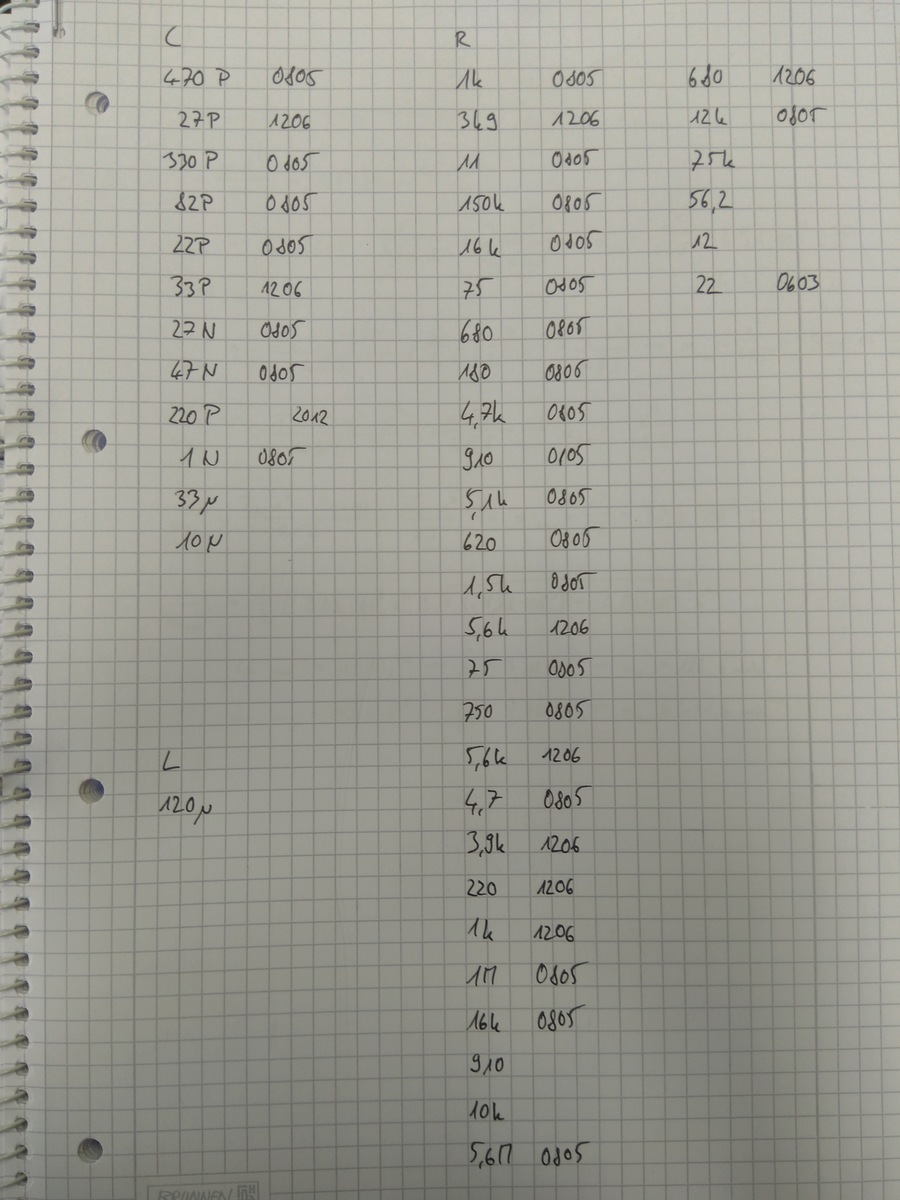 C
470 P 0805
27P 1206
330 P 0805
82P 0805
22P 0805
33P 1206
27 N 0805
47 N 0805
220 P 2012
1 N 0805
33µ
10 µ
L
120µ
R
1k 0805
3k9 1206
11 0805
150k 0805
16k 0805
75 0805
680 0805
180 0805
4,7k 0805
910 0805
5,1k 0805
620 0805
1,5k 0805
5,6k 1206
75 0805
750 0805
5,6k 1206
4,7 0805
3,9k 1206
220 1206
1k 1206
1M 0805
16k 0805
910
10k
5,6M 0805
680 1206
12k 0805
75k
56,2
12
22 0603
BRUNNEN